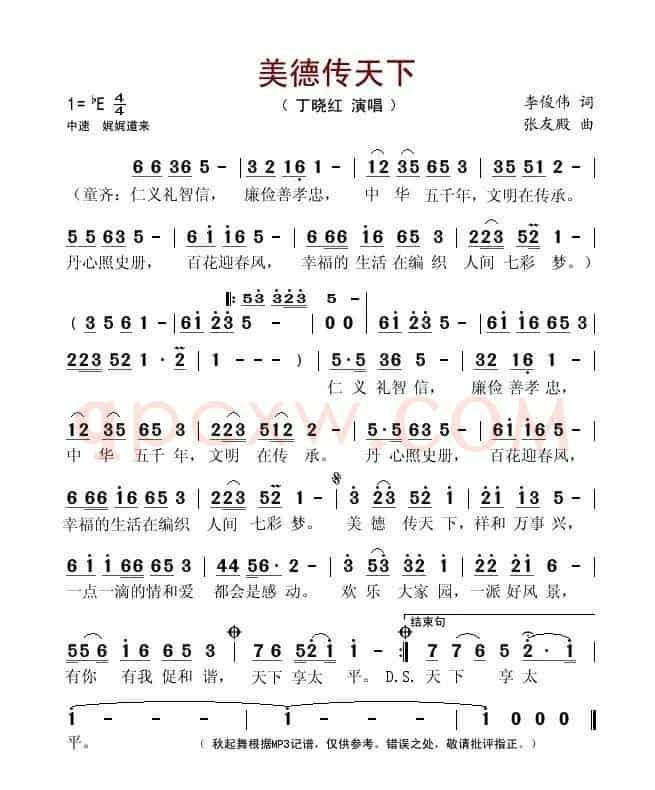 美德传天下
1= ♭E 4/4
（ 丁晓红 演唱 ）
李俊伟 词
中速 娓娓道来
张友殿 曲
6 6 36 5 - | 3 2 16 1 - | 12 35 65 3 | 35 51 2 - |
（童齐：仁义礼智信， 廉俭善孝忠， 中 华 五千年，文明在传承。
5 5 63 5 - | 61 16 5 - | 6 66 16 65 3 | 223 52 1 - |
丹心照史册， 百花迎春风， 幸福的 生活 在编 织 人间 七彩 梦。）
53 323 5 -
( 3 5 6 1 - | 61 23 5 - | 0 0
223 52 1· 2 | 1 - - - ) | 5·5 36 5 - | 32 16 1 - |
仁 义 礼智 信， 廉俭 善孝 忠，
12 35 65 3 | 223 512 2 - | 5·5 63 5 - | 61 16 5 - |
中 华 五千 年，文明 在传 承。 丹 心照 史册， 百花迎春风，
6 66 16 65 3 | 223 52 1 - | 3 23 52 1 | 61 12 53 3 |
幸福的生活在编织 人间 七彩 梦。 美 德 传天 下，祥和 万事 兴，
6 1 1 66 65 | 44 56· 2 - | 3 53 32 1 | 61 22 33 2 |
一点一滴的情和爱 都会是感 动。 欢 乐 大家 园，一派好风景，
结束句
556 16 65 3 | 76 521 1 - :| 77 65 2· 1 |
有你 有我 促和 谐， 天下 享太 平。D.S. 天 下 享 太
1 - - - | 1 - - - | 1 - - - | 1 0 0 0 ‖
平。 （ 秋起舞根据MP3记谱，仅供参考。错误之处，敬请批评指正。）
qpcxw.COM